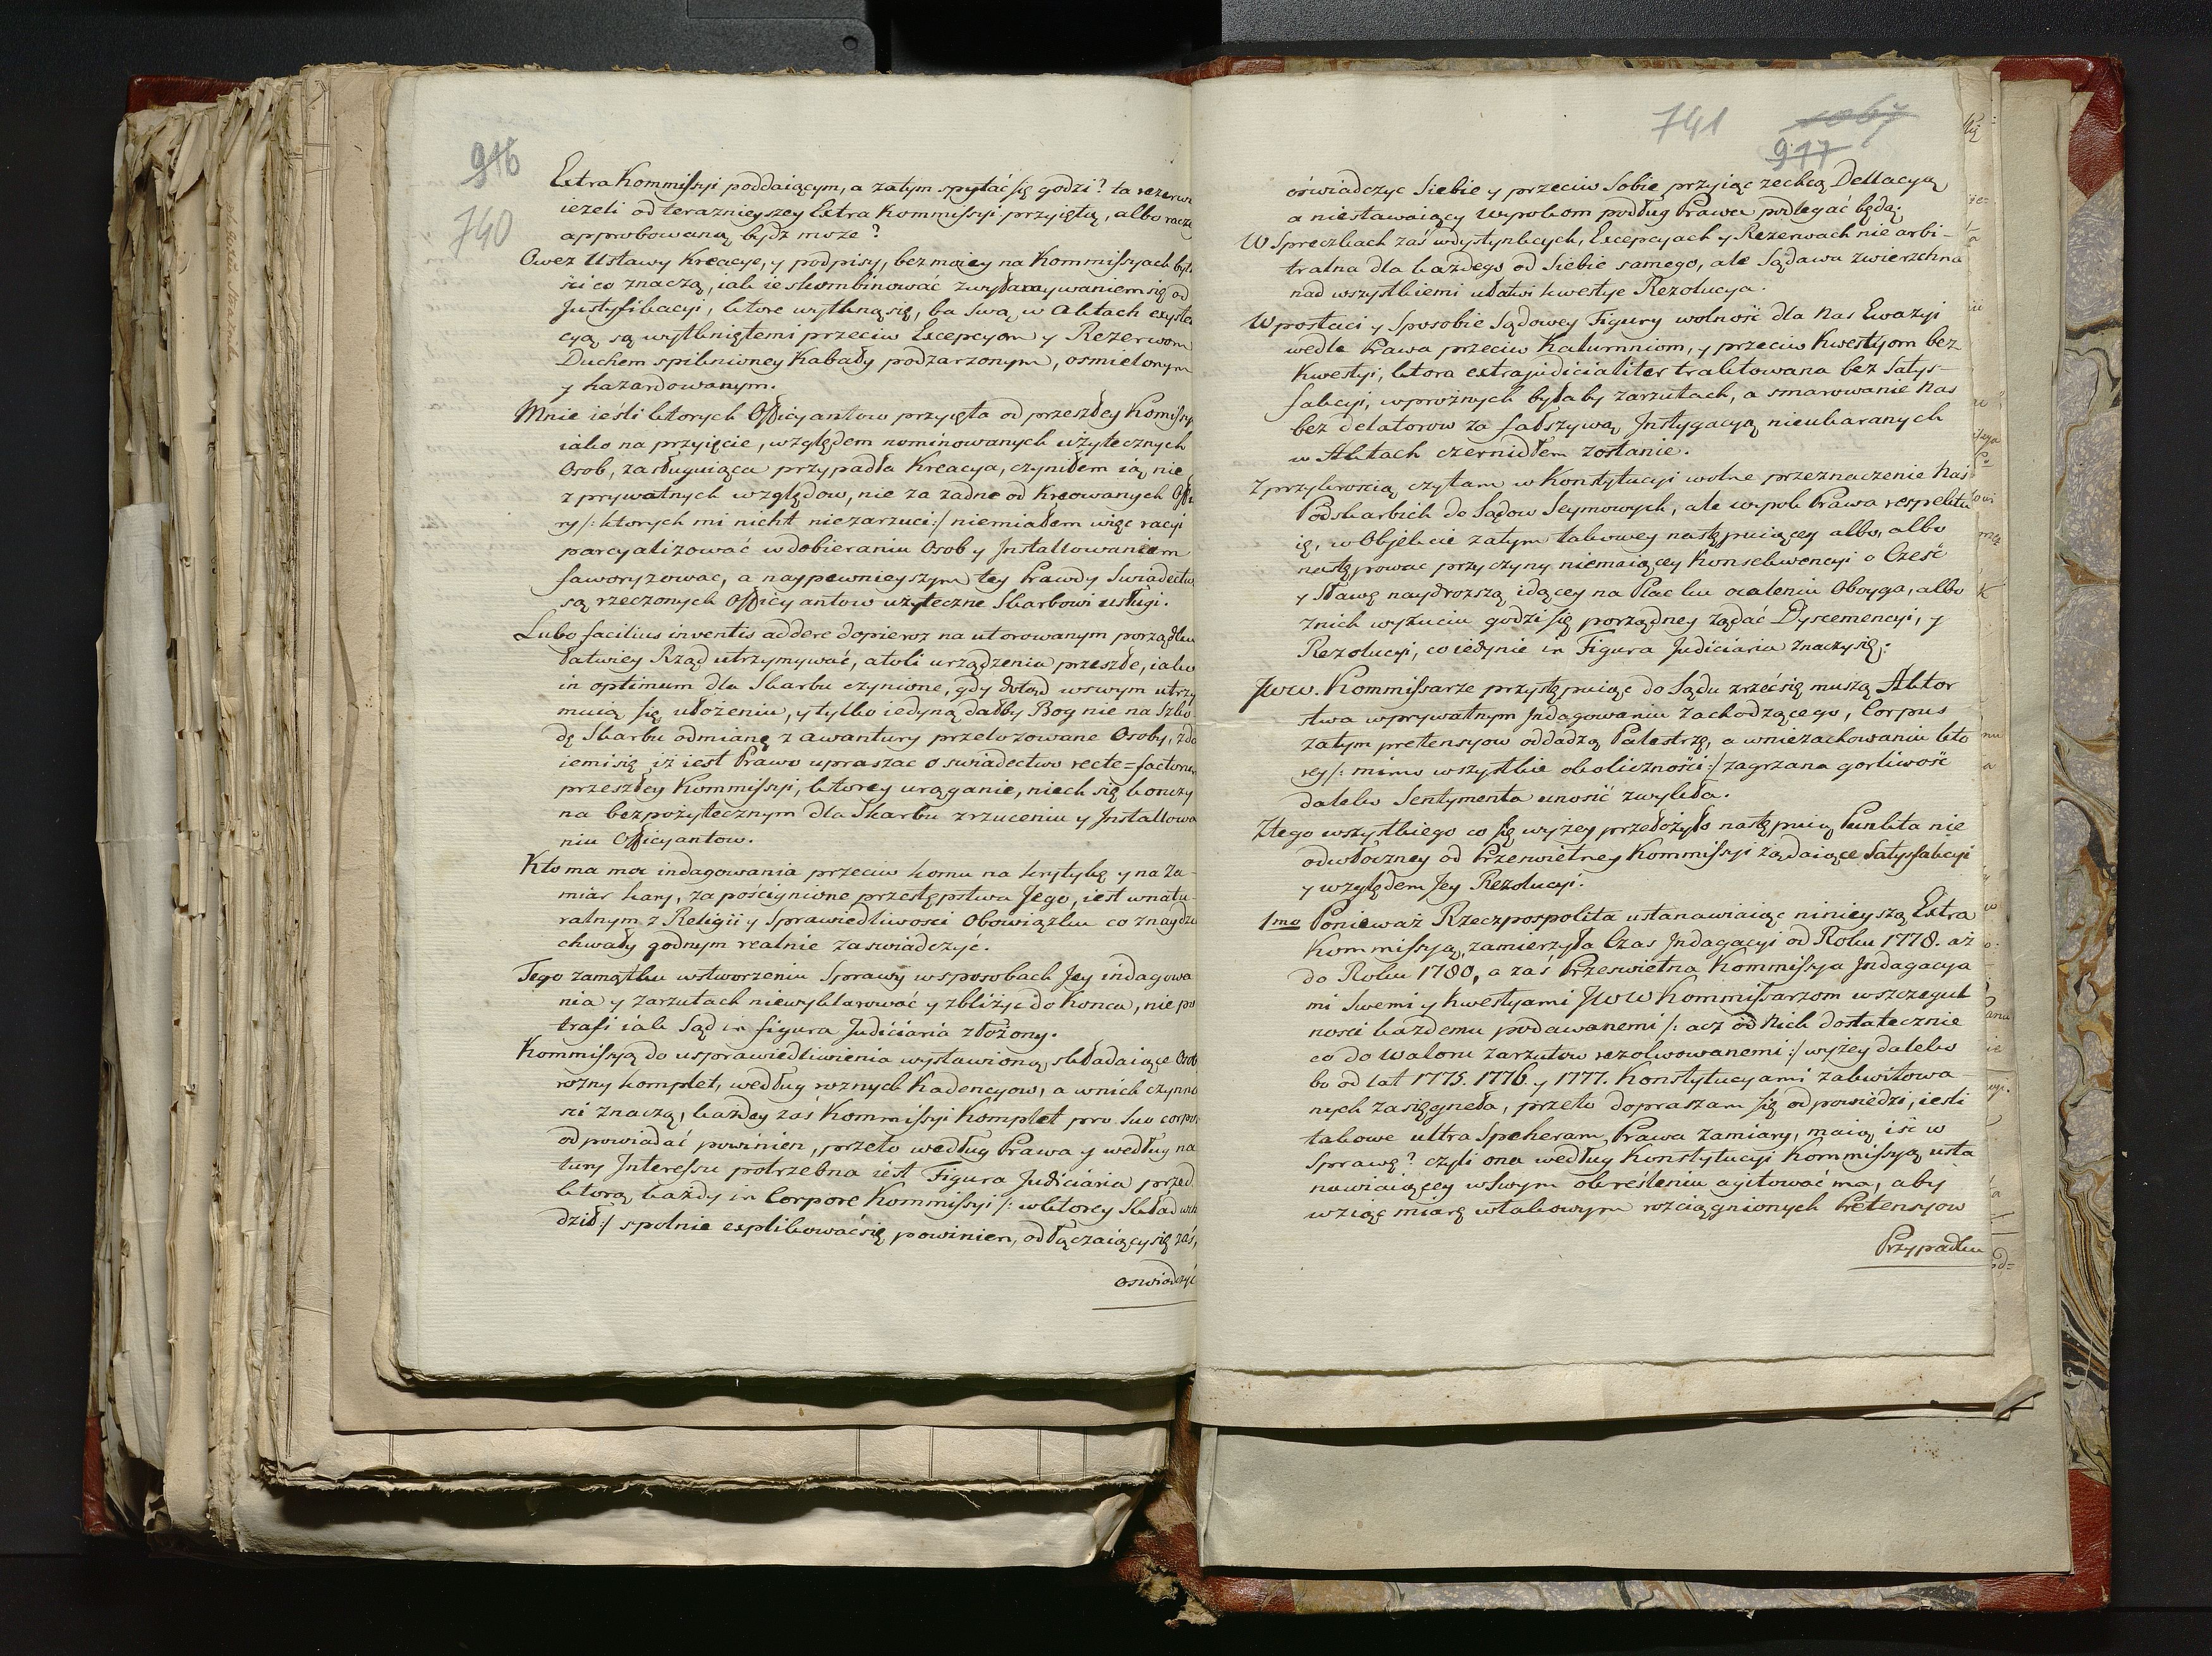 916
740
Extra Kommissyi poddaiącym, a zatym spytać się godzi? ta rezerw
ieżeli od terazniejszey Extra Kommissyi przyiętą, albo racze
approbowaną bydz moze?
Owez Ustawy Kreacye, y podpisy, bez moiey na Kommissyach byt
ści co znaczą, iak ie skombinować z wyłamywaniem się od
Justyfikacyi, ktore wytkną się, ba swą w Aktach exyste
cyą są wytkniętemi przeciw Excepcyom y Rezerwom
Duchem spiknioney Kabały podżarzonym, osmielonym
y hazardowanym.
Mnie ieśli ktorych Officyantow przyięta od przeszłey Komissy
iako na przyięcie, względem nominowanych użytecznych
Osob, zasługuiąca przypadła Kreacya, czyniłem ią nie
z prywatnych względow, nie za żadne od Kreowanych Offi
ry /: ktorych mi nicht niezarzuci :/ niemiałem więc racyi
parcyalizować w dobieraniu Osob y Jnstallowaniem
faworyzowac, a naypewnieyszym tey Prawdy Swiadectw
są rzeczonych Officyantow użyteczne Skarbowi usługi.
Lubo facilius inventis addere dopieroż na utorowanym porządku
łatwiey Rząd utrzymywać, atoli urządzenia przeszłe, iako
in optimum dla Skarbu czynione, gdy dotąd w swym utrzy
muią się ułożeniu, y tylko iedyną dałby Bog nie na Szko-
dę Skarbu odmianę z awantury przelozowane Osoby, zda
iemi się iż iest Prawo upraszac o swiadectwo recte=factoru
przeszłey Kommissyi, ktorey urąganie, niech się konczy
na bezpożytecznym dla Skarbu zrzuceniu y Jnstallowa
niu Officyantow.
Kto ma moc indagowania przeciw komu na krytykę y na za-
miar kary, za poścignione przestępstwa Jego, iest w natu-
ralnym z Religii y Sprawiedliwosci Obowiązku co znaydz
chwały godnym realnie zaswiadczyć.
Tego zamątku w stworzeniu Sprawy w sposobach Jey indagowa
nia y zarzutach niewyklarować y zbliżyc do Konca, nie po
trafi iak Sąd in figura Judiciaria złożony.
Kommissyą do usprawiedliwienia wystawioną, składaiące Osob
rożny komplet, według rożnych Kadencyow, a w nich czynno
ści znaczą, każdey zaś Kommissyi Komplet pro Suo corpo
odpowiadać powinien, przeto według Prawa y według na
tury Jnteressu potrzebna iest Figura Judiciaria przed
ktorą każdy in Corpore Kommissyi /: w ktorey Skład wch
dził :/ spolnie explikować się powinien, odłączaiący się zaś,
oswiadczyć
741
917
oświadczyc Siebie y przeciw Sobie przyiąc zechcą Dellacyą
a niestawaiący wyrokom podług Prawa podlegać będą.
W Spreczkach zaś w dystynkcych, Excepcyach y Rezerwach nie arbi-
tralna dla każdego od Siebie samego, ale Sądawa zwierzchna
nad wszystkiemi ułatwi kwestye Rezolucya.
W postaci y Sposobie Sądowey Figury wolność dla Nas Ewazyi
wedle Prawa przeciw Kalumniom, y przeciw Kwestyom bez
Kwestyi, ktora extrajudicialiter traktowana bez Satys-
fakcyi, w prożnych byłaby zarzutach, a smarowanie Nas
bez delatorow za fałszywą Jnstygacyą nieukaranych
w Aktach czernidłem zostanie.
Z przykroscią czytam w Konstytucyi wolne przeznaczenie Nas
Podskarbich do Sądow Seymowych, ale wyrok Prawa respektu
ię, w Objekcie zatym takowey następuiącey albo, albo
następowac przyczyny niemaiącey Konsekwencyi o Cześć
y Sławę naydrozszą idącey na Plac ku ocaleniu Oboyga, albo
z nich wyzuciu godzi się porządney żądać Dyscemencyi, y
Rezolucyi, co iedynie in Figura Judiciaria znaczy się.
JWW. Kommissarze przystępuiąc do Sądu zrzec się muszą Aktor
stwa w prywatnym Jndagowaniu zachodzącego, Corpus
zatym pretensyow oddadzą Palestrze, a w niezachowaniu kto
rey /: mimo wszystkie okoliczności :/ zagrzana gorliwość
daleko Sentymenta unosić zwykła.
Z tego wszystkiego co się wyżey przełożyło następuią Punkta nie
odwłoczney od Przeswietney Kommissyi żądaiące Satysfakcyi
y względem Jey Rezolucyi.
1mo Ponieważ Rzeczpospolita ustanawiaiąc ninieyszą Extra
Kommissyą, zamierzyła Czas Jndagacyi od Roku 1778. aż
do Roku 1780, a zaś Przeswietna Kommissya Jndagacya
mi Swemi y Kwestyami JWW Kommissarzom w szczegul
nosci każdemu podawanemi /: acz od Nich dostatecznie
co do Waloru zarzutow rezolwowanemi :/ wyżey daleko
bo od lat 1775. 1776. y 1777. Konstytucyami zakwitowa
nych zasięgneła, przeto dopraszam się odpowiedzi, iesli
takowe ultra Spcheram Prawa zamiary, maią iść w
Sprawę? czyli ona według Konstytucyi Kommissyą usta
nawiaiącey w Swym okreśłeniu agitować ma, aby
wziąc miarę w takowym rozciągnionych Pretensyow
Przypadku